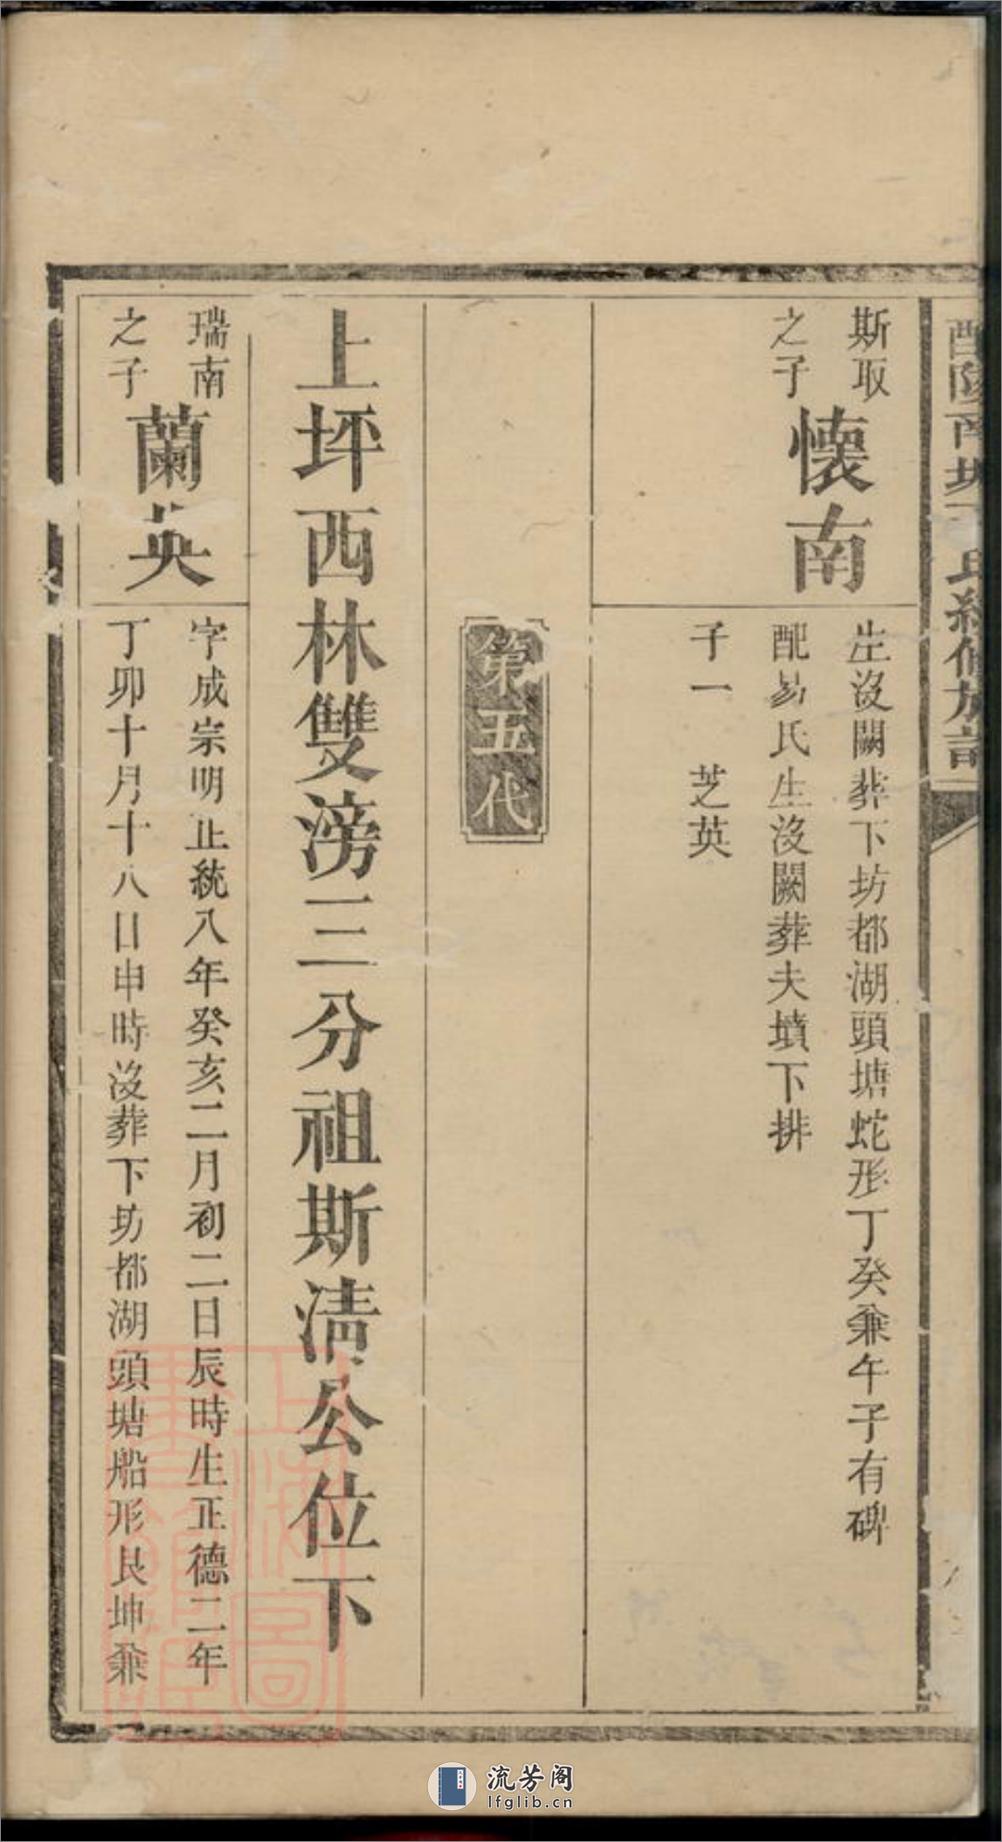 斯取
之子
懷南
生沒闕葬下坊都湖頭塘蛇形丁癸兼午子有碑
配易氏生沒闕葬夫墳下排
子一　芝英
第五代
上坪西林雙滂三分祖斯淸公位下
瑞南
之子
蘭英
字成宗明正統八年癸亥二月初二日辰時生正德二年
丁卯十月十八日申時沒葬下坊都湖頭塘船形艮坤兼
上海圖
書館藏
流芳阁
lfglib.cn